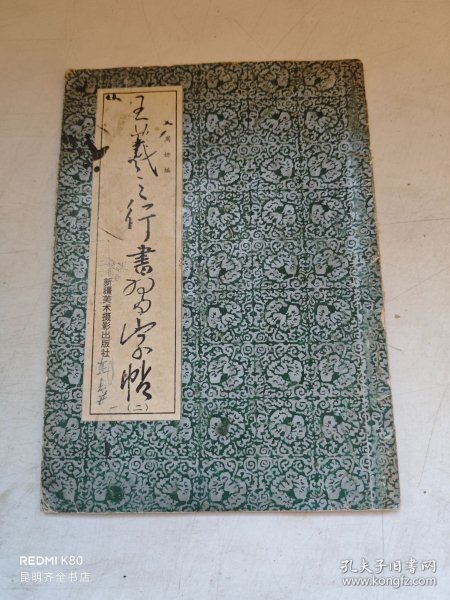 王羲之行書習字帖
(二)
新疆美术摄影出版社
REDMI K80
昆明齐全书店
孔夫子旧书网
www.kongfz.com